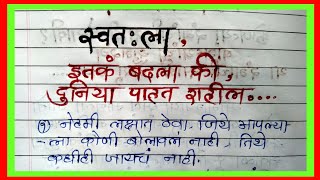 स्वतःला,
इतकं बदला की,
दुनिया पाहत राहील....
१) नेहमी लक्षात ठेवा. जिथे आपल्या
-ला कोणी बोलावलं नाही, तिथे
कधीही जायचं नाही.